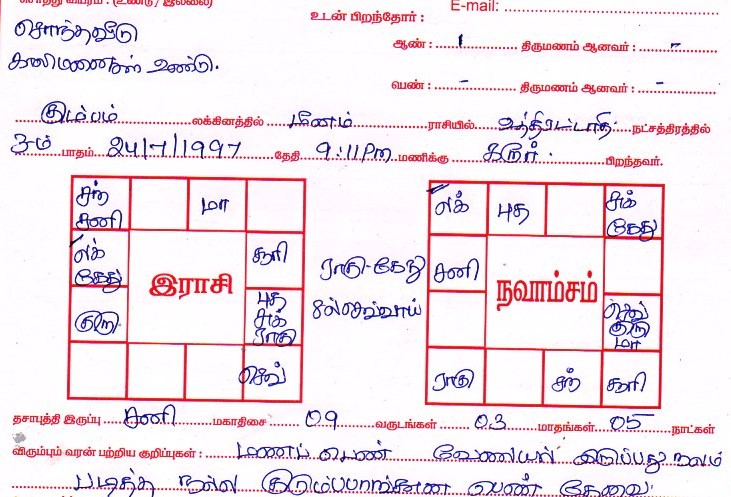 சொத்து விபரம் : (உண்டு / இல்லை)
E-mail:
உடன் பிறந்தோர் :
சொந்தவீடு
ஆண் : 1 திருமணம் ஆனவர் : -
காலிமனைகள் உண்டு.
பெண் : - திருமணம் ஆனவர் : -
கும்பம் லக்கினத்தில் மீனம் ராசியில் உத்திரட்டாதி நட்சத்திரத்தில்
3ம் பாதம் 24/7/1997 தேதி 9:11 Pm மணிக்கு கரூர் பிறந்தவர்.
சந் சனி
மா
லக் கேது
சூரி
இராசி
குரு
புத சுக் ராகு
செவ்
ராகு-கேது
8ல் செவ்வாய்
லக்
புத
சுக் கேது
சனி
நவாம்சம்
செவ் குரு மா
ராகு
சந்
சூரி
தசாபுத்தி இருப்பு சனி மகாதிசை 09 வருடங்கள் 03 மாதங்கள் 05 நாட்கள்
விரும்பும் வரன் பற்றிய குறிப்புகள் : மணப்பெண் நலம்
படித்த நல்ல குடும்பபாங்கான பெண் தேவை